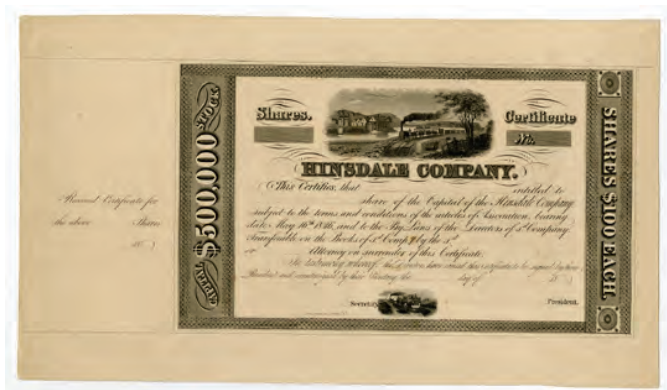 Received Certificate for
the above Shares
18
CAPITAL $500,000 STOCK.
Shares.
Certificate
No.
HINSDALE COMPANY.
This Certifies, that entitled to
share of the Capital of the Hinsdale Company
subject to the terms and conditions of the articles of Association, bearing
date May 16th 1846, and to the Bye Laws of the Directors of sd Company.
Transferable on the Books of sd Compy by the sd
or Attorney on surrender of this Certificate.
In testimony whereof the directors have caused this certificate to be signed by their
President and countersigned by their Secretary this day of 18
Secretary
President.
SHARES $100 EACH.